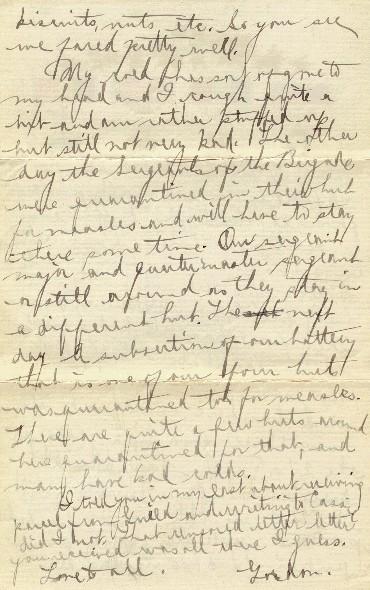 biscuits, nuts etc. So you see
we fared pretty well.
My cold has sort of gone to
my head and I cough quite a
bit and am rather stuffed up
but still not very bad. The other
day the Sergeants of the Brigade
were quarantined in their hut
for measles and will have to stay
there some time. Our sergeant
major and quartermaster sergeant
are still around as they stay in
a different hut. The next
day A subsection of our battery
that is one of our four huts
was quarantined too for measles.
There are quite a few huts around
here quarantined for that, and
many have bad colds.
I told you in my last about receiving
parcel from and writing to
did I not. That letter
you received was all there I guess.
Love to all. Gordon.